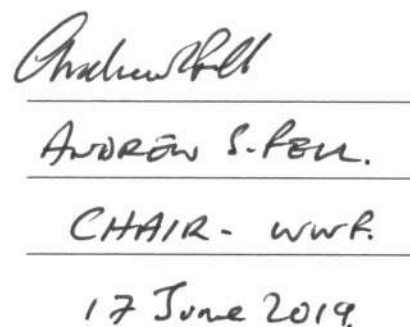 Andrew Fell
ANDREW S. FELL.
CHAIR - WWF.
17 June 2019.